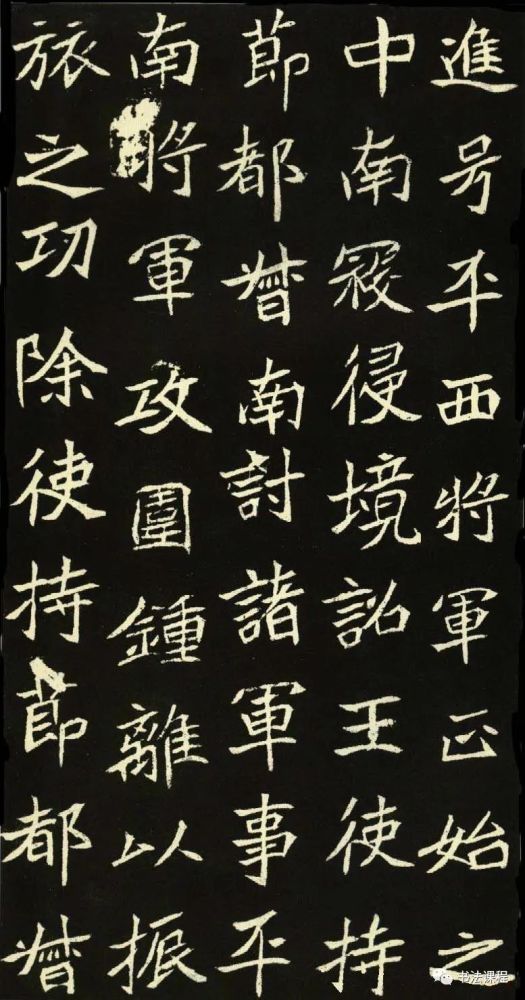 進号平西將軍正始之
中南寇侵境詔王使持
節都督南討諸軍事平
南將軍攻圍鍾離以振
旅之功除使持節都督
书法课程